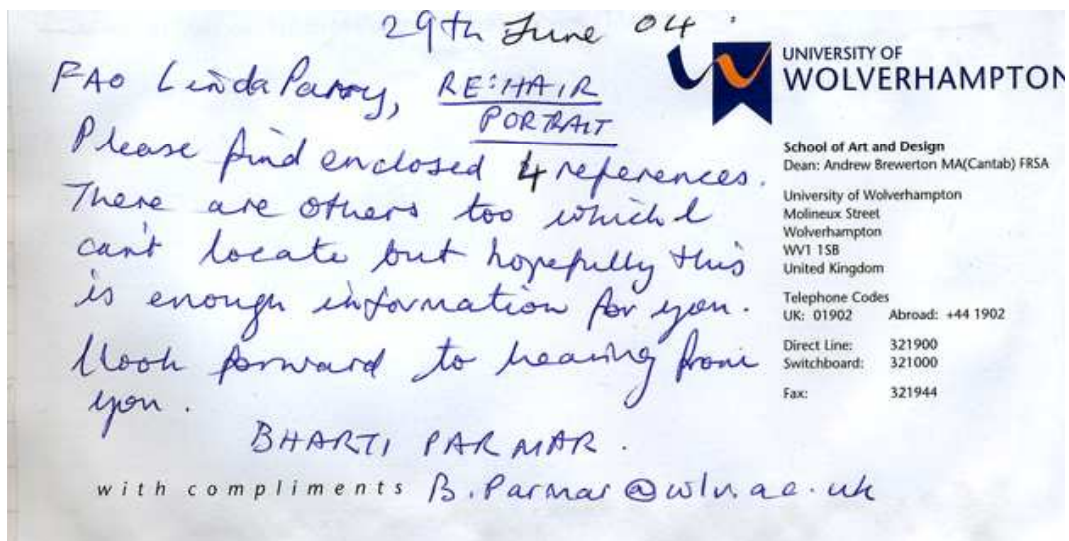 29th June 04.
FAO Linda Parry, RE: HAIR
PORTRAIT
Please find enclosed 4 references.
There are others too which I
can't locate but hopefully this
is enough information for you.
I look forward to hearing from
you.
BHARTI PARMAR.
with compliments B.Parmar@wlv.ac.uk
UNIVERSITY OF
WOLVERHAMPTON
School of Art and Design
Dean: Andrew Brewerton MA(Cantab) FRSA
University of Wolverhampton
Molineux Street
Wolverhampton
WV1 1SB
United Kingdom
Telephone Codes
UK: 01902 Abroad: +44 1902
Direct Line: 321900
Switchboard: 321000
Fax: 321944